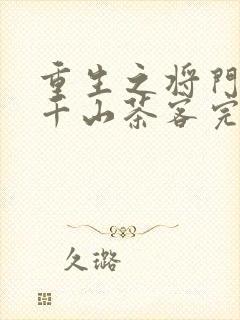 重生之将门
千山茶客完
久璐